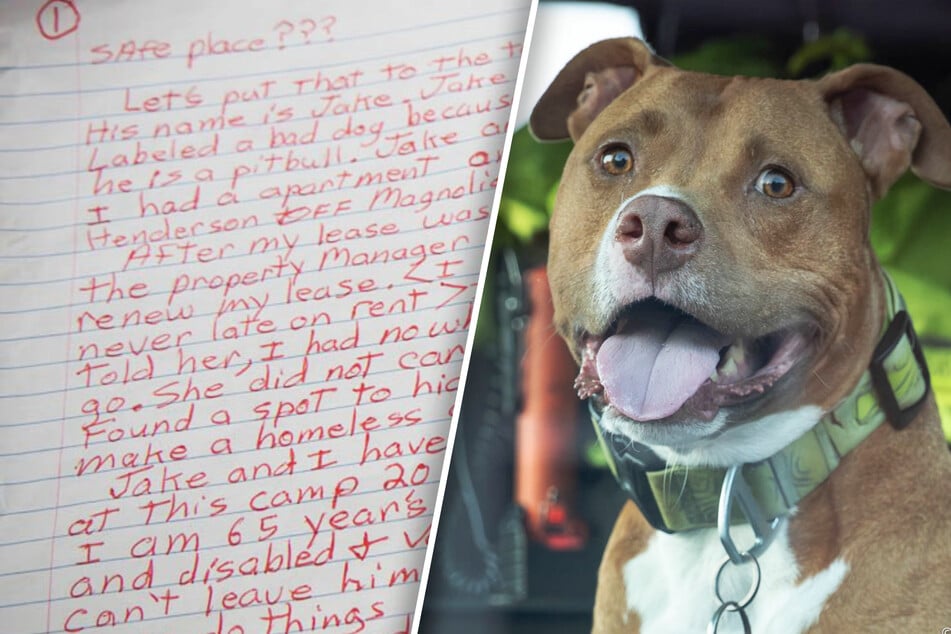 1
SAfe place???
Let's put that to the t
His name is Jake. Jake
Labeled a bad dog becaus
he is a pitbull. Jake a
I had a apartment a
Henderson OFF Magnoli
After my lease was
the property Manager
renew my lease. <I
never late on rent>
told her, I had now
go. She did not car
Found a spot to hi
make a homeless
Jake and I have
at this camp 20
I am 65 year's
and disabled + v
can't leave him
do things